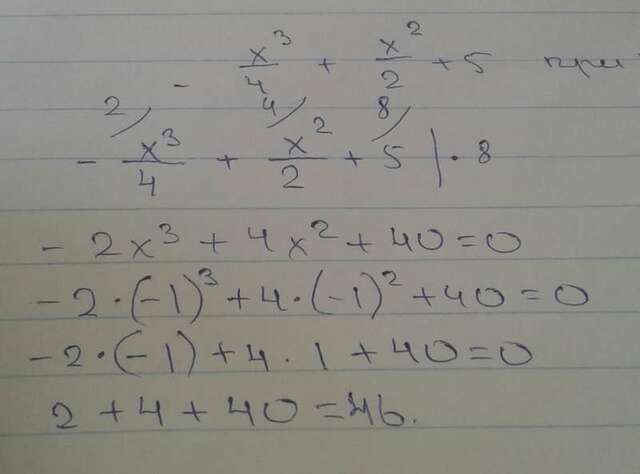 - x³/4 + x²/2 + 5 при
2 4 8
- x³/4 + x²/2 + 5 | · 8
- 2x³ + 4x² + 40 = 0
- 2 · (-1)³ + 4 · (-1)² + 40 = 0
- 2 · (-1) + 4 · 1 + 40 = 0
2 + 4 + 40 = 46.